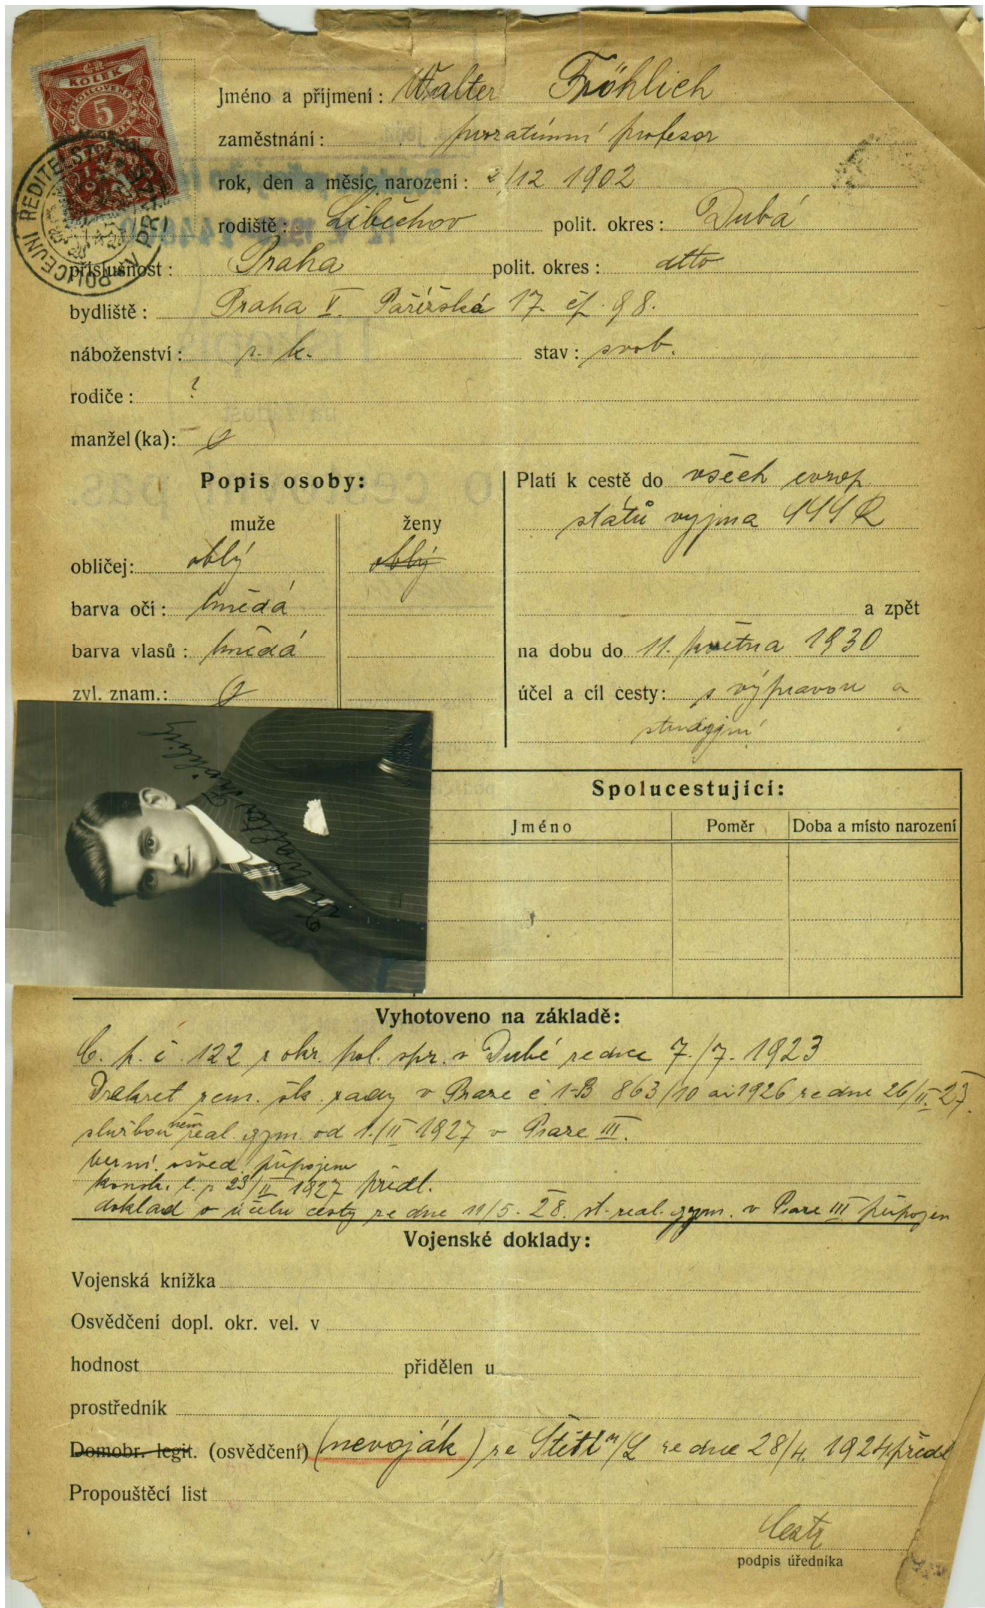 KOLEK
5
POLICEJNÍ ŘEDITELSTVÍ V PRAZE
Jméno a příjmení: Walter Fröhlich
zaměstnání: profesor
rok, den a měsíc narození: 2/12 1902
rodiště: Liběchov polit. okres: Dubá
příslušnost: Praha polit. okres: dtto
bydliště: Praha V. Pařížská 17. čp. 98.
náboženství: ř. k. stav: svob.
rodiče: ?
manžel(ka): 0
Popis osoby:
muže ženy
obličej: oblý oblý
barva očí: hnědá
barva vlasů: hnědá
zvl. znam.: 0
Platí k cestě do všech evrop
států vyjma
a zpět
na dobu do 11. května 1930
účel a cíl cesty: s výpravou a
studijní
Dr. Walter Fröhlich
Spolucestující:
Jméno Poměr Doba a místo narození
Vyhotoveno na základě:
č. 122 z okr. pol. spr. v Dubé ze dne 7./7. 1923
Dekret zem. šk. rady v Praze č 1-B 863/10 ai 1926 ze dne 26/II 27.
něm
službou real. gym. od 1./II 1927 v Praze III.
osvěd. připojeno
23/II 1927 předl.
doklad o účelu cesty ze dne 11/5. 28. st. real. gym. v Praze III připojen
Vojenské doklady:
Vojenská knížka
Osvědčení dopl. okr. vel. v
hodnost přidělen u
prostředník
Domobr. legit. (osvědčení) (nevoják) ze Štětí n/L ze dne 28/4. 1924 předl
Propouštěcí list
podpis úředníka